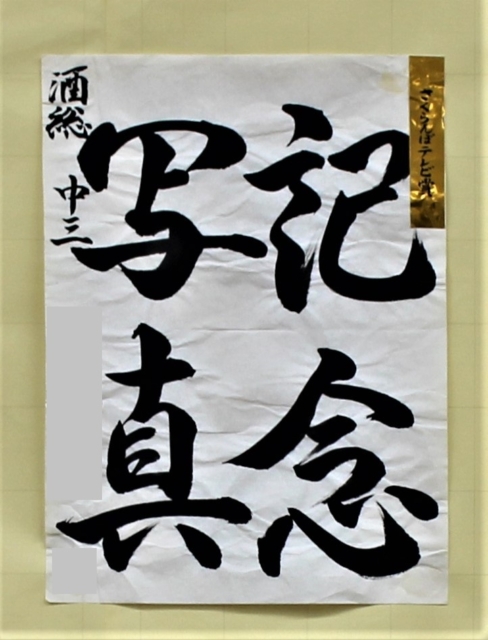 記念
写真
酒総 中三
さくらんぼテレビ賞